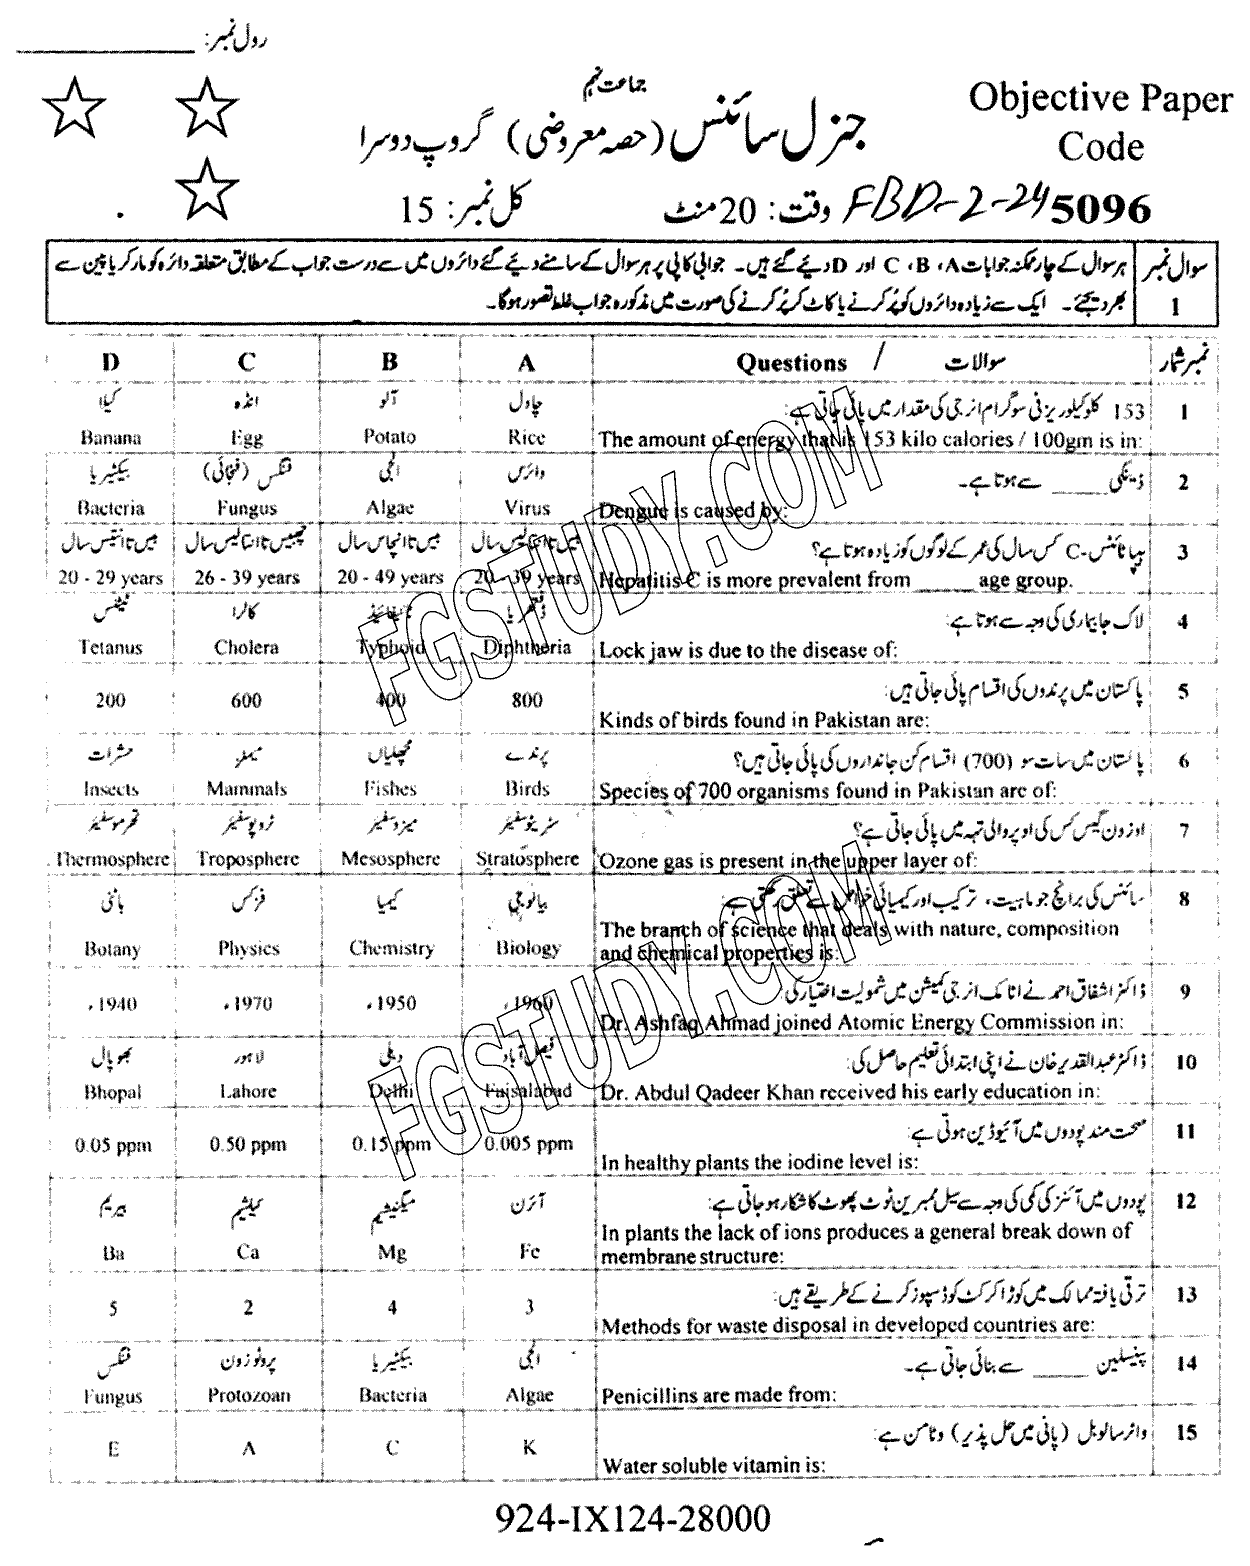 رول نمبر: ____________
جماعت نہم
جنرل سائنس (حصہ معروضی) گروپ دوسرا
Objective Paper
Code
5096
FBD-2-24
وقت: 20 منٹ
کل نمبر: 15
سوال نمبر 1
ہر سوال کے چار ممکنہ جوابات A، B، C اور D دئیے گئے ہیں۔ جوابی کاپی پر ہر سوال کے سامنے دئیے گئے دائروں میں سے درست جواب کے مطابق متعلقہ دائرہ کو مارکر یا پین سے
بھر دیجئے۔ ایک سے زیادہ دائروں کو پُر کرنے یا کاٹ کر پُر کرنے کی صورت میں مذکورہ جواب غلط تصور ہوگا۔
نمبر شمار سوالات / Questions A B C D
1 153 کلو کیلوریز فی سو گرام انرجی کی مقدار میں پائی جاتی ہے: چاول آلو انڈہ کیلا
The amount of energy that is 153 kilo calories / 100gm is in: Rice Potato Egg Banana
2 ڈینگی _____ سے ہوتا ہے۔ وائرس الجی فنگس (فنجائی) بیکٹیریا
Dengue is caused by: Virus Algae Fungus Bacteria
3 ہیپاٹائٹس-C کس سال کی عمر کے لوگوں کو زیادہ ہوتا ہے؟ بیس تا انتالیس سال بیس تا انچاس سال چھبیس تا انتالیس سال بیس تا انتیس سال
Hepatitis C is more prevalent from ______ age group. 20 - 39 years 20 - 49 years 26 - 39 years 20 - 29 years
4 لاک جا بیماری کی وجہ سے ہوتا ہے: ڈفتھریا ٹائیفائیڈ کالرا ٹیٹنس
Lock jaw is due to the disease of: Diphtheria Typhoid Cholera Tetanus
5 پاکستان میں پرندوں کی اقسام پائی جاتی ہیں:
Kinds of birds found in Pakistan are: 800 400 600 200
6 پاکستان میں سات سو (700) اقسام کن جانداروں کی پائی جاتی ہیں؟ پرندے مچھلیاں میملز حشرات
Species of 700 organisms found in Pakistan are of: Birds Fishes Mammals Insects
7 اوزون گیس کس کی اوپر والی تہہ میں پائی جاتی ہے؟ سٹریٹوسفیئر میزوسفیئر ٹروپوسفیئر تھرموسفیئر
Ozone gas is present in the upper layer of: Stratosphere Mesosphere Troposphere Thermosphere
8 سائنس کی برانچ جو ماہیت، ترکیب اور کیمیائی خواص سے تعلق رکھتی ہے: بیالوجی کیمیا فزکس باٹنی
The branch of science that deals with nature, composition
and chemical properties is: Biology Chemistry Physics Botany
9 ڈاکٹر اشفاق احمد نے اٹامک انرجی کمیشن میں شمولیت اختیار کی:
Dr. Ashfaq Ahmad joined Atomic Energy Commission in: 1960ء 1950ء 1970ء 1940ء
10 ڈاکٹر عبدالقدیر خان نے اپنی ابتدائی تعلیم حاصل کی: فیصل آباد دہلی لاہور بھوپال
Dr. Abdul Qadeer Khan received his early education in: Faisalabad Delhi Lahore Bhopal
11 صحت مند پودوں میں آئیوڈین ہوتی ہے:
In healthy plants the iodine level is: 0.005 ppm 0.15 ppm 0.50 ppm 0.05 ppm
12 پودوں میں آئنز کی کمی کی وجہ سے سیل ممبرین ٹوٹ پھوٹ کا شکار ہو جاتی ہے: آئرن میگنیشیم کیلشیم بیریم
In plants the lack of ions produces a general break down of
membrane structure: Fe Mg Ca Ba
13 ترقی یافتہ ممالک میں کوڑا کرکٹ کو ڈسپوز کرنے کے طریقے ہیں:
Methods for waste disposal in developed countries are: 3 4 2 5
14 پنسلین _____ سے بنائی جاتی ہے۔ الجی بیکٹیریا پروٹوزون فنگس
Penicillins are made from: Algae Bacteria Protozoan Fungus
15 واٹر سالوبل (پانی میں حل پذیر) وٹامن ہے:
Water soluble vitamin is: K C A E
924-IX124-28000
FGSTUDY.COM
FGSTUDY.COM